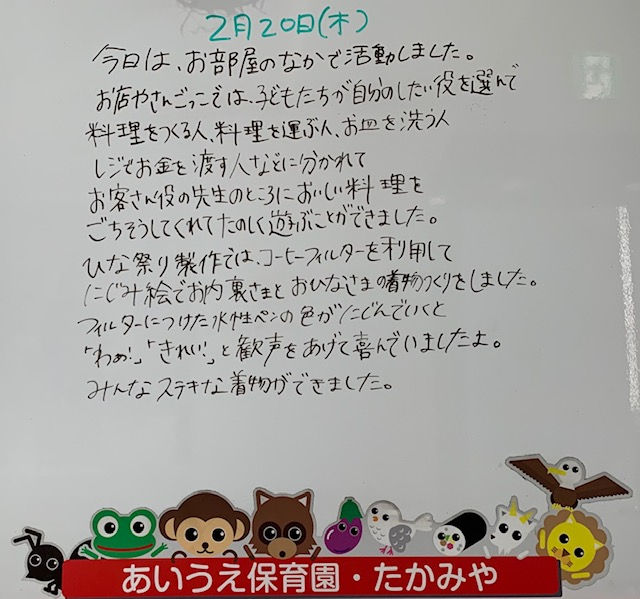 2月20日(木)
今日は、お部屋のなかで活動しました。
お店やさんごっこでは、子どもたちが自分のしたい役を選んで
料理をつくる人、料理を運ぶ人、お皿を洗う人
レジでお金を渡す人などに分かれて
お客さん役の先生のところにおいしい料理を
ごちそうしてくれてたのしく遊ぶことができました。
ひな祭り製作では、コーヒーフィルターを利用して
にじみ絵でお内裏さまとおひなさまの着物づくりをしました。
フィルターにつけた水性ペンの色がにじんでいくと
「わぁ!」「きれい!」と歓声をあげて喜んでいましたよ。
みんなステキな着物ができました。
あいうえ保育園・たかみや